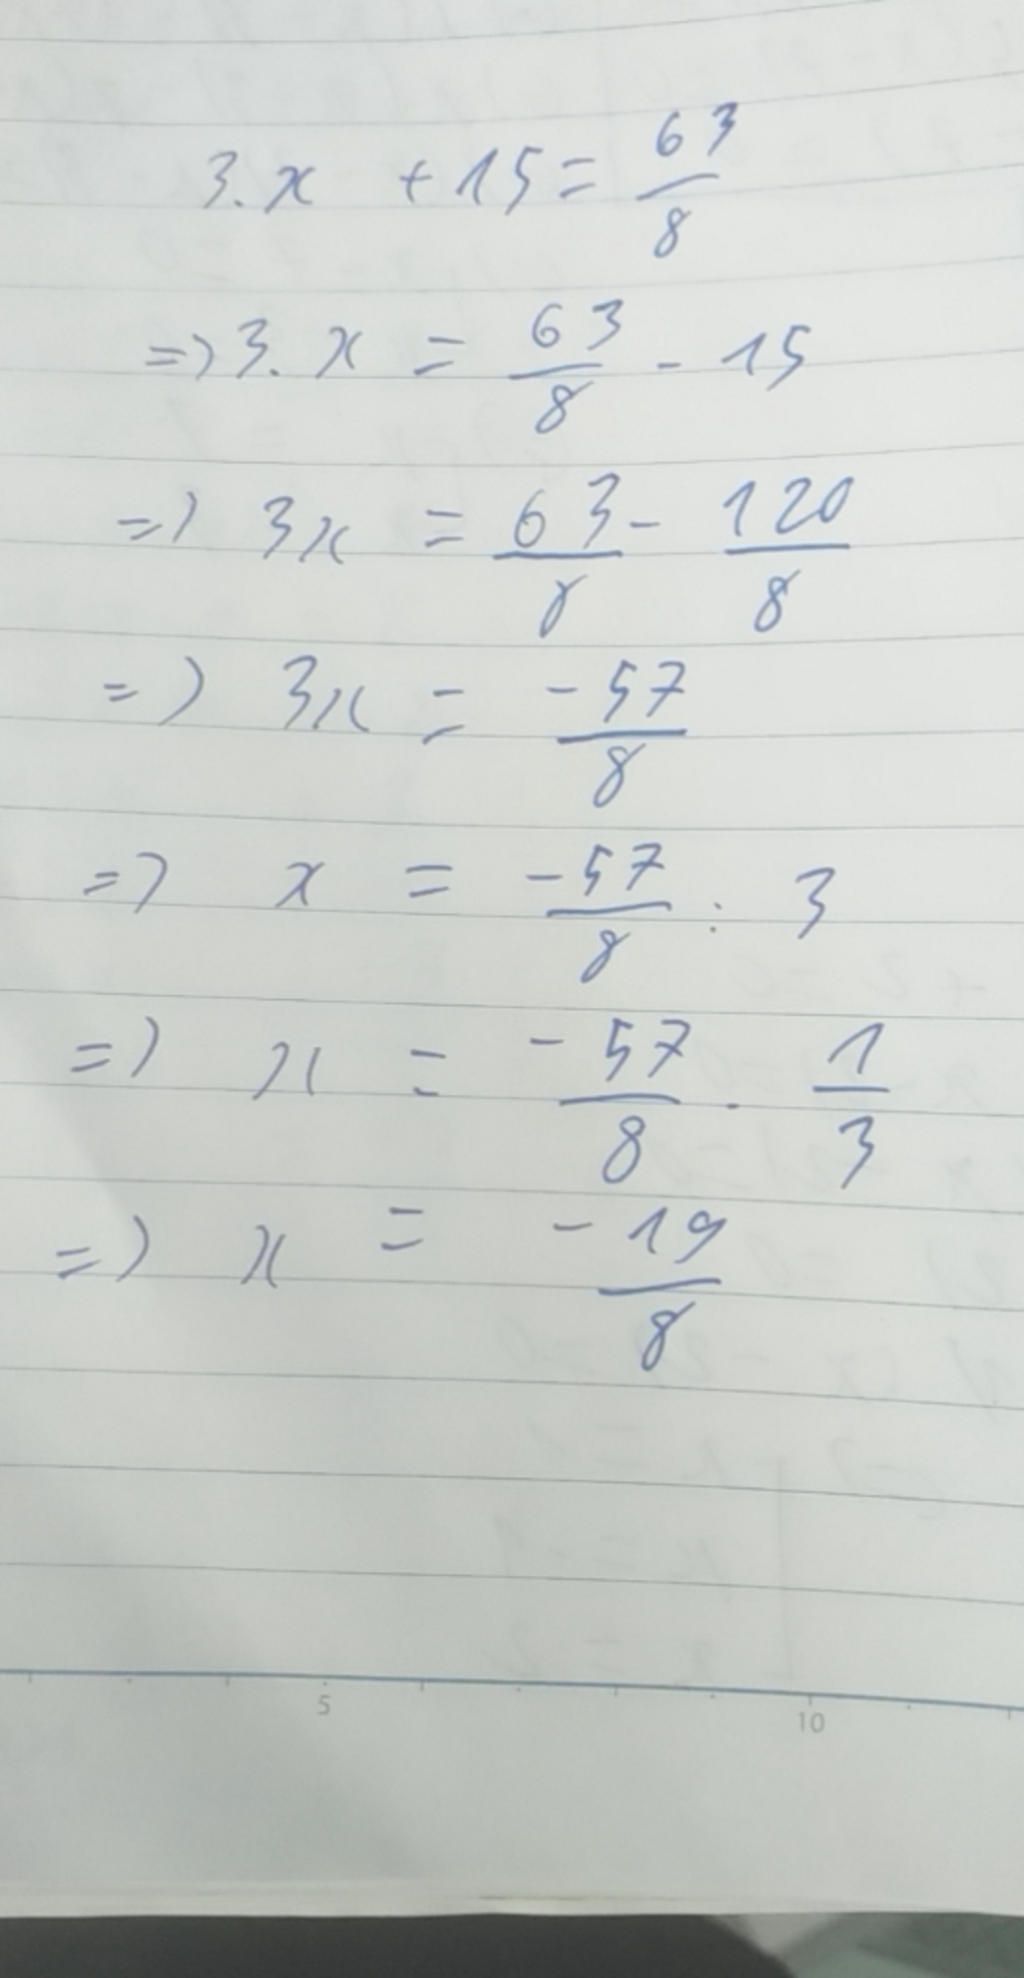 3.x + 15 = 63/8
=> 3.x = 63/8 - 15
=> 3x = 63/8 - 120/8
=> 3x = -57/8
=> x = -57/8 : 3
=> x = -57/8 . 1/3
=> x = -19/8
5 10